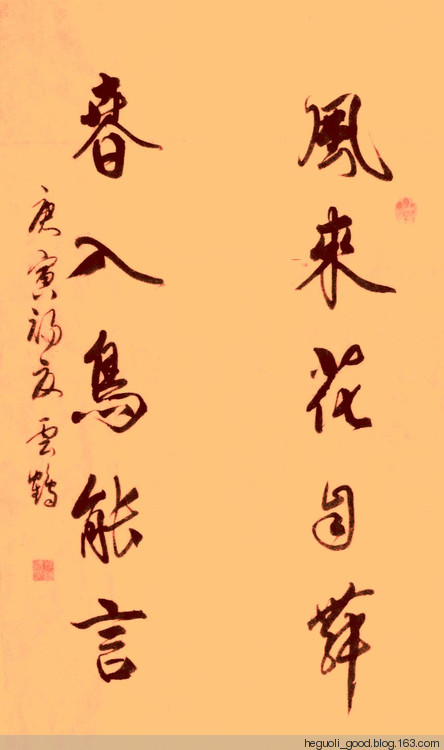 風來花自舞
春入鳥能言
庚寅初夏雲鶴
heguoli_good.blog.163.com